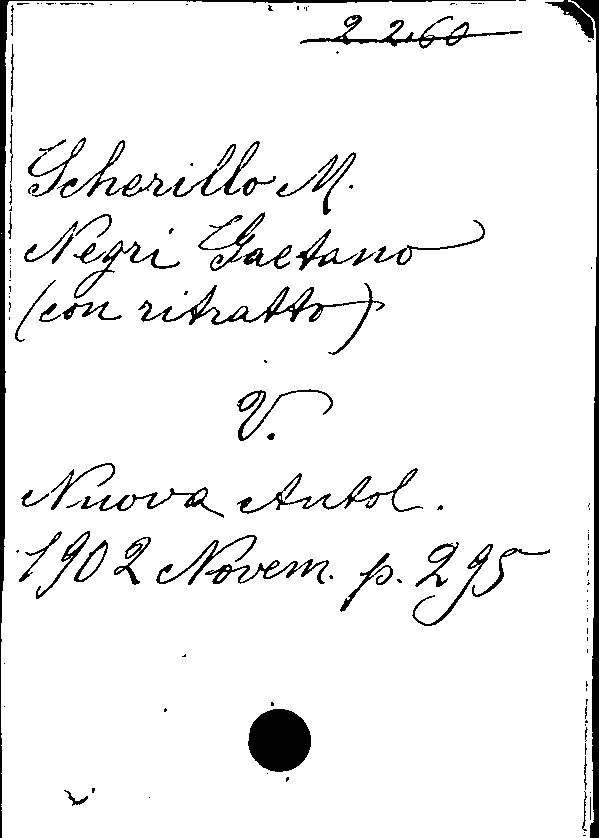 2260
Scherillo M.
Negri Gaetano
(con ritratto)
V.
Nuova Antol.
1902 Novem. p. 295